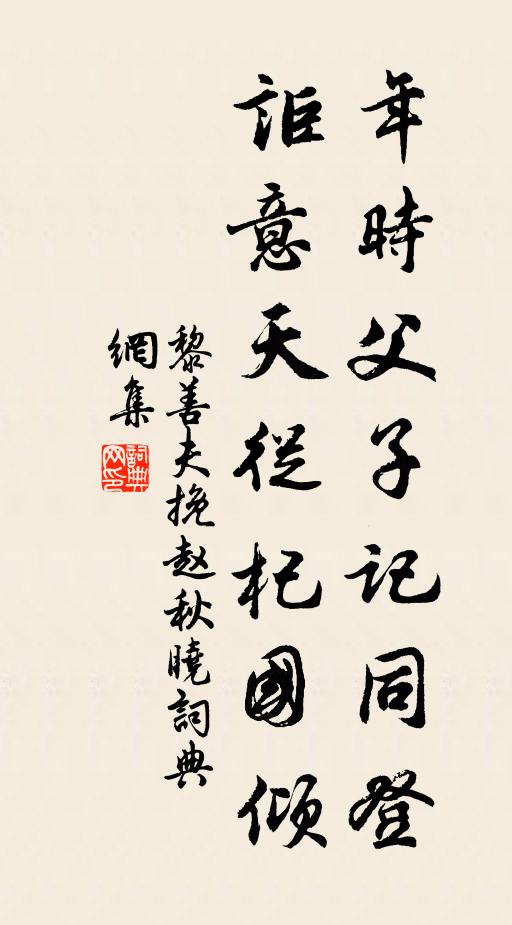 年時父子記同登
詎意天從杞國傾
黎善夫挽赵秋曉詞典
網集
詞典
网印